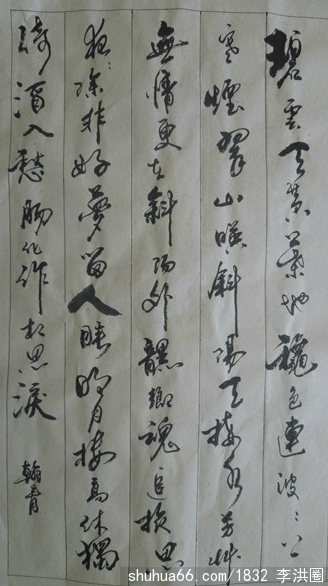 碧雲天黄葉地龝色連波〻上
寒煙翠山暎斜陽天接水芳艸
無情更在斜陽外黯鄉魂追旅思
夜〻除非好夢留人睡明月樓高休獨
倚酒入愁腸化作相思淚
翰青
shuhua66.com/1832 李洪圈